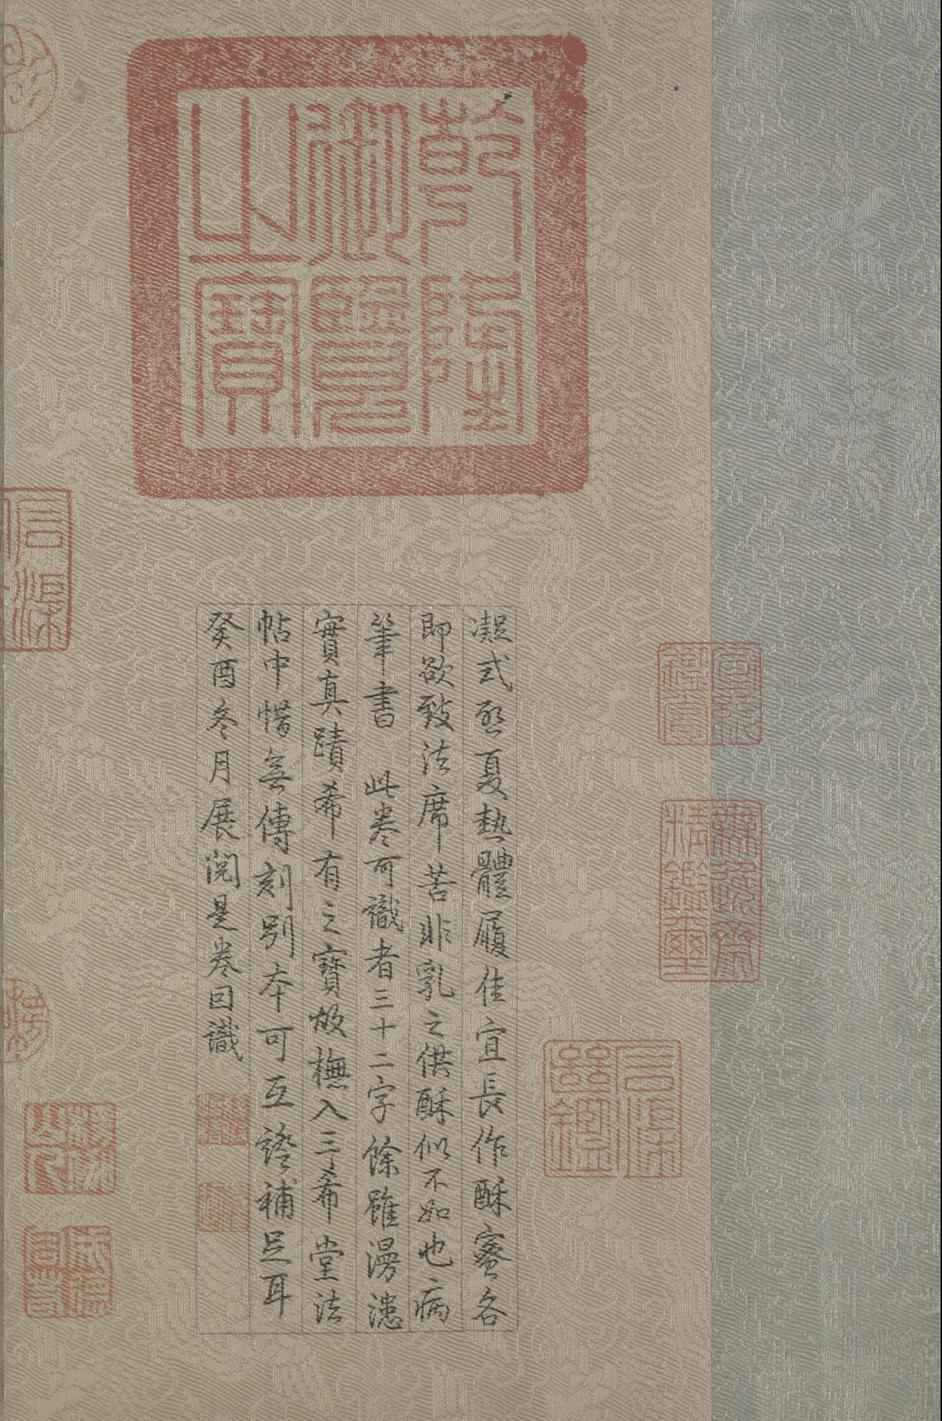 乾隆
御覽
之寶
宣統
鑑賞
無逸齋
精鑑璽
石渠
繼鑑
凝式啟夏熱體履佳宜長作酥蜜各
即欲致法席苦非乳之供酥似不如也病
筆書 此卷可識者三十二字餘雖漫漶
實真蹟希有之寶故橅入三希堂法
帖中惜無傳刻別本可互證補足耳
癸酉冬月展閱是卷因識
石渠